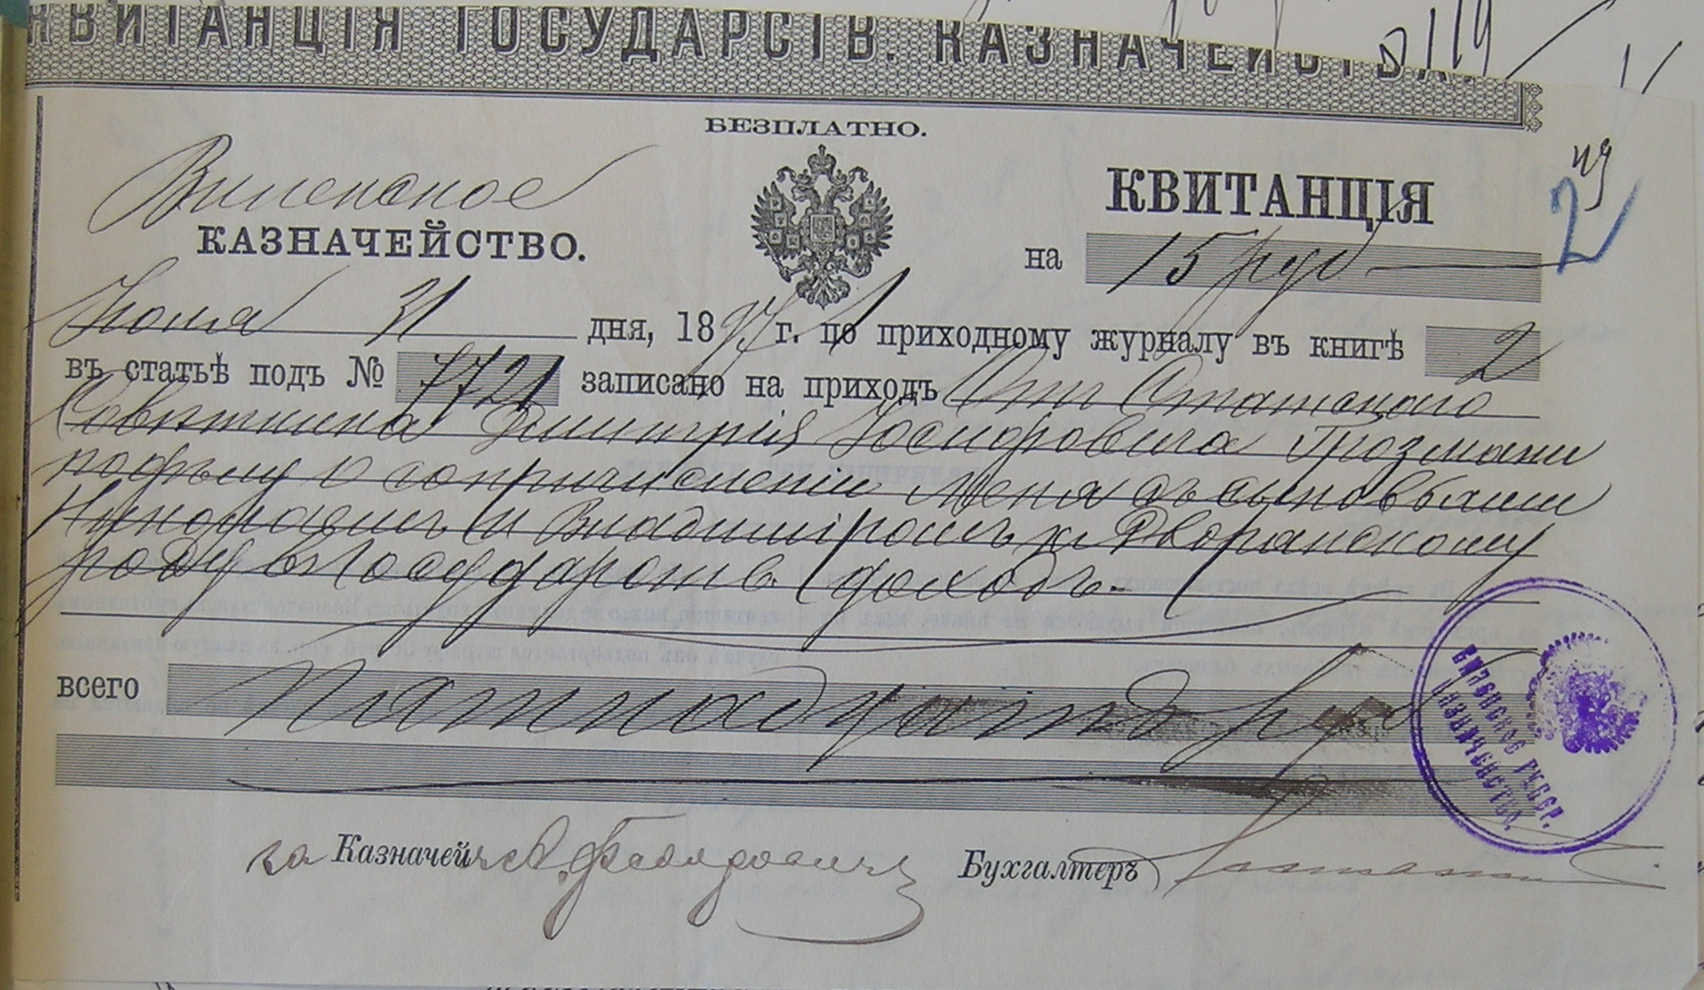 КВИТАНЦІЯ ГОСУДАРСТВ. КАЗНАЧЕЙСТВА.
БЕЗПЛАТНО.
Виленское
КАЗНАЧЕЙСТВО.
КВИТАНЦІЯ
на 15 руб
2
31 дня, 1897 г. по приходному журналу въ книгѣ 2
въ статьѣ подъ № 7721 записано на приходъ Отъ Статскаго
Совѣтника Димитрія Іосифовича
о сопричисленіи меня съ сыновьями
и Владиміромъ къ Дворянскому
роду въ Государств. доходъ
всего пятнадцать руб
за Казначей Бухгалтеръ
ВИЛЕНСКОЕ ГУБЕР. КАЗНАЧЕЙСТВО.